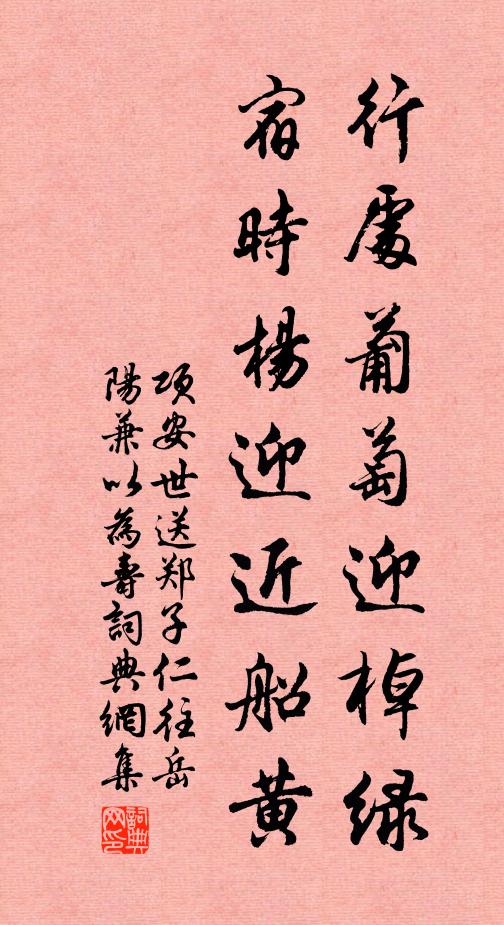 行處葡萄迎棹绿
宿時楊迎近船黄
项安世送郑子仁往岳
陽兼以為壽詞典網集
詞典网印